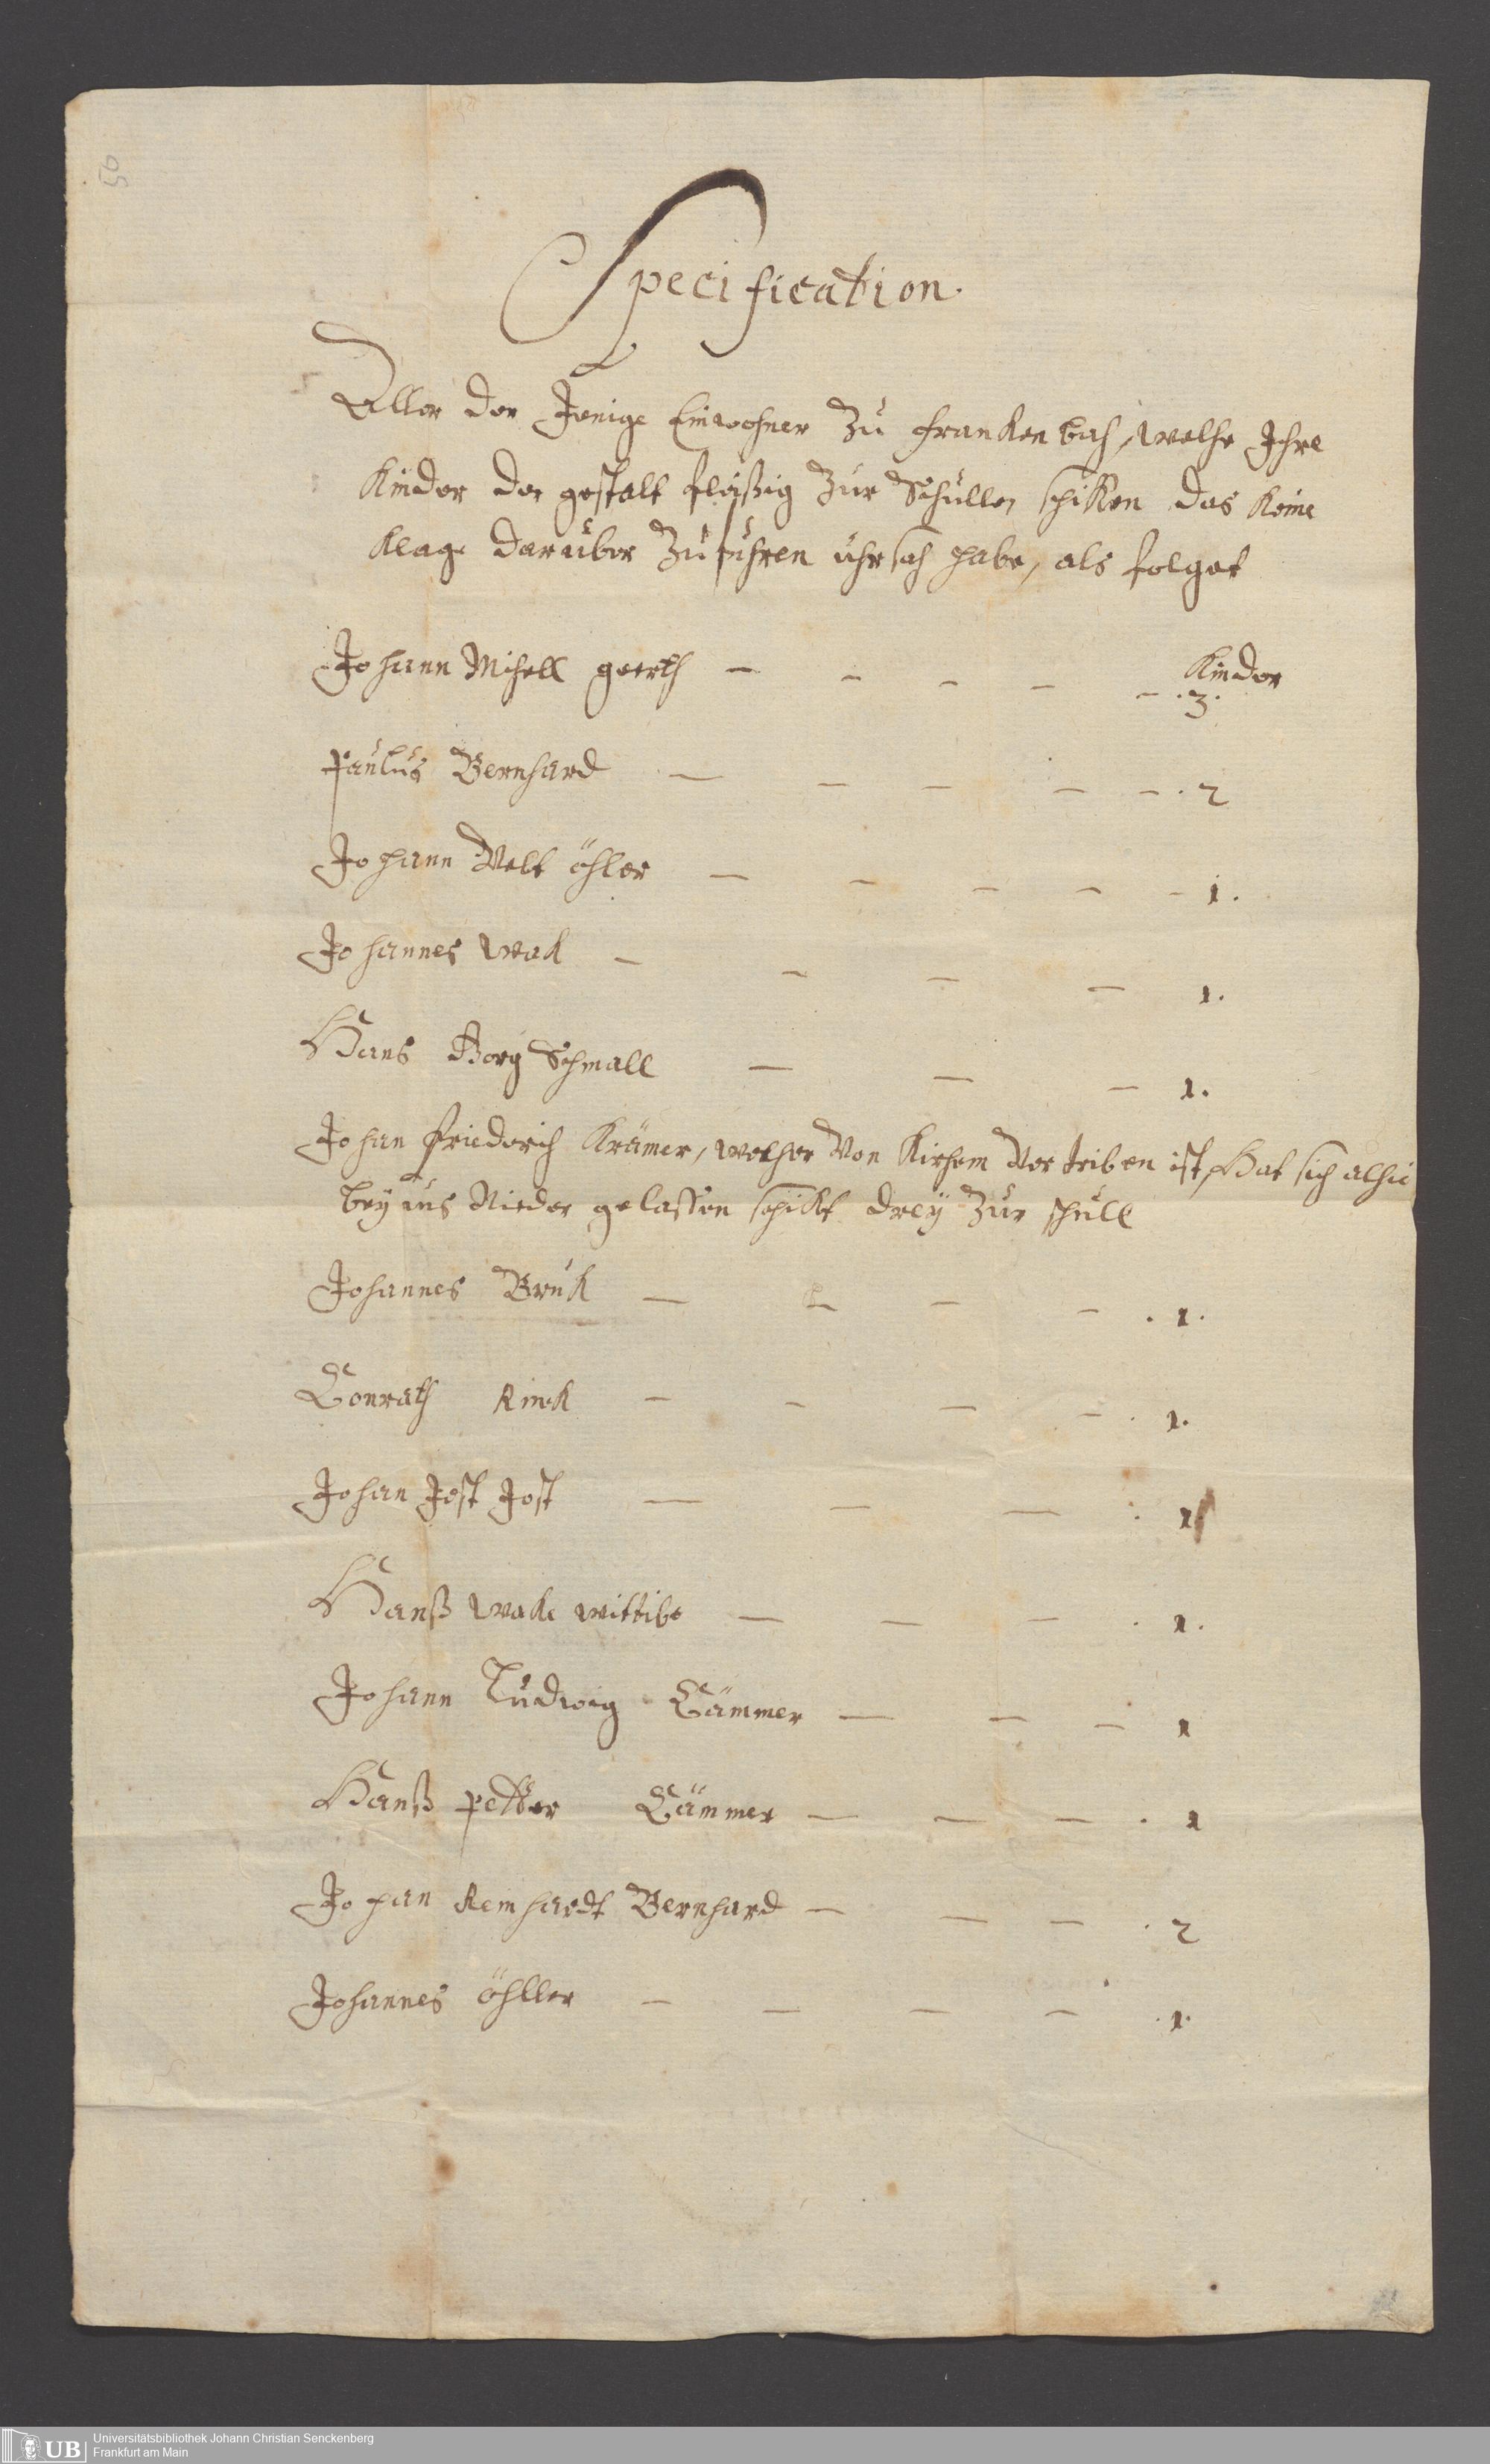 50
Specification
Aller der Jenige Einwohner Zu Franckenbach, welche Jhre
Kinder der gestalt fleißig Zur Schullen schicken das keine
klage darüber Zu führen uhrsach habe, als folget
Johann Michell gerth - - - - - Kinder .3.
Paulus Bernhard - - - - - . 2
Johann Velt öhler - - - - - 1.
Johannes wack - - - - 1.
Hans Görg Schmall - - - 1.
Johan friederich Krämer, welcher Von Kirchem Vertriben ist, Hat sich alhie
bey uns Nieder gelassen schickt dreÿ Zur schull
Johannes Bruck - - - - . 1.
Conrath Rinck - - - - . 1.
Johan Jost Jost - - - . 1
Hanß wacke wittibe - - - . 1.
Johann Ludwig Cämmer - - - 1
Hanß petter Cämmer - - - . 1
Johan Reinhardt Bernhard - - - . 2
Johannes öhller - - - - . 1.
UB
Universitätsbibliothek Johann Christian Senckenberg
Frankfurt am Main